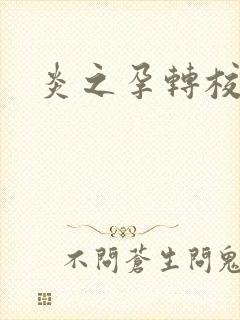 炎之孕轉校
不問蒼生問鬼